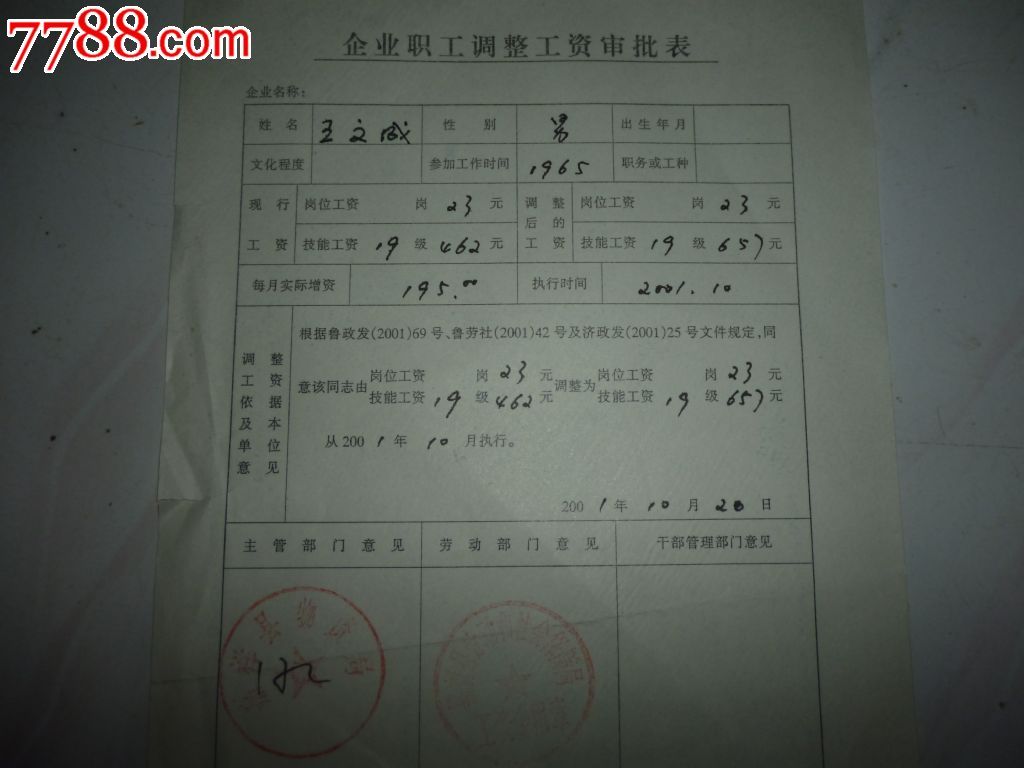 7788.com
企业职工调整工资审批表
企业名称：
姓名 王文成 性别 男 出生年月
文化程度 参加工作时间 1965 职务或工种
现行工资 岗位工资 岗 23 元 调整后的工资 岗位工资 岗 23 元
技能工资 19 级 462 元 技能工资 19 级 657 元
每月实际增资 195.00 执行时间 2001.10
调整工资依据及本单位意见
根据鲁政发(2001)69号、鲁劳社(2001)42号及济政发(2001)25号文件规定，同
意该同志由 岗位工资 岗 23 元 调整为 岗位工资 岗 23 元
技能工资 19 级 462 元 技能工资 19 级 657 元
从2001年10月执行。
2001年10月20日
主管部门意见 劳动部门意见 干部管理部门意见